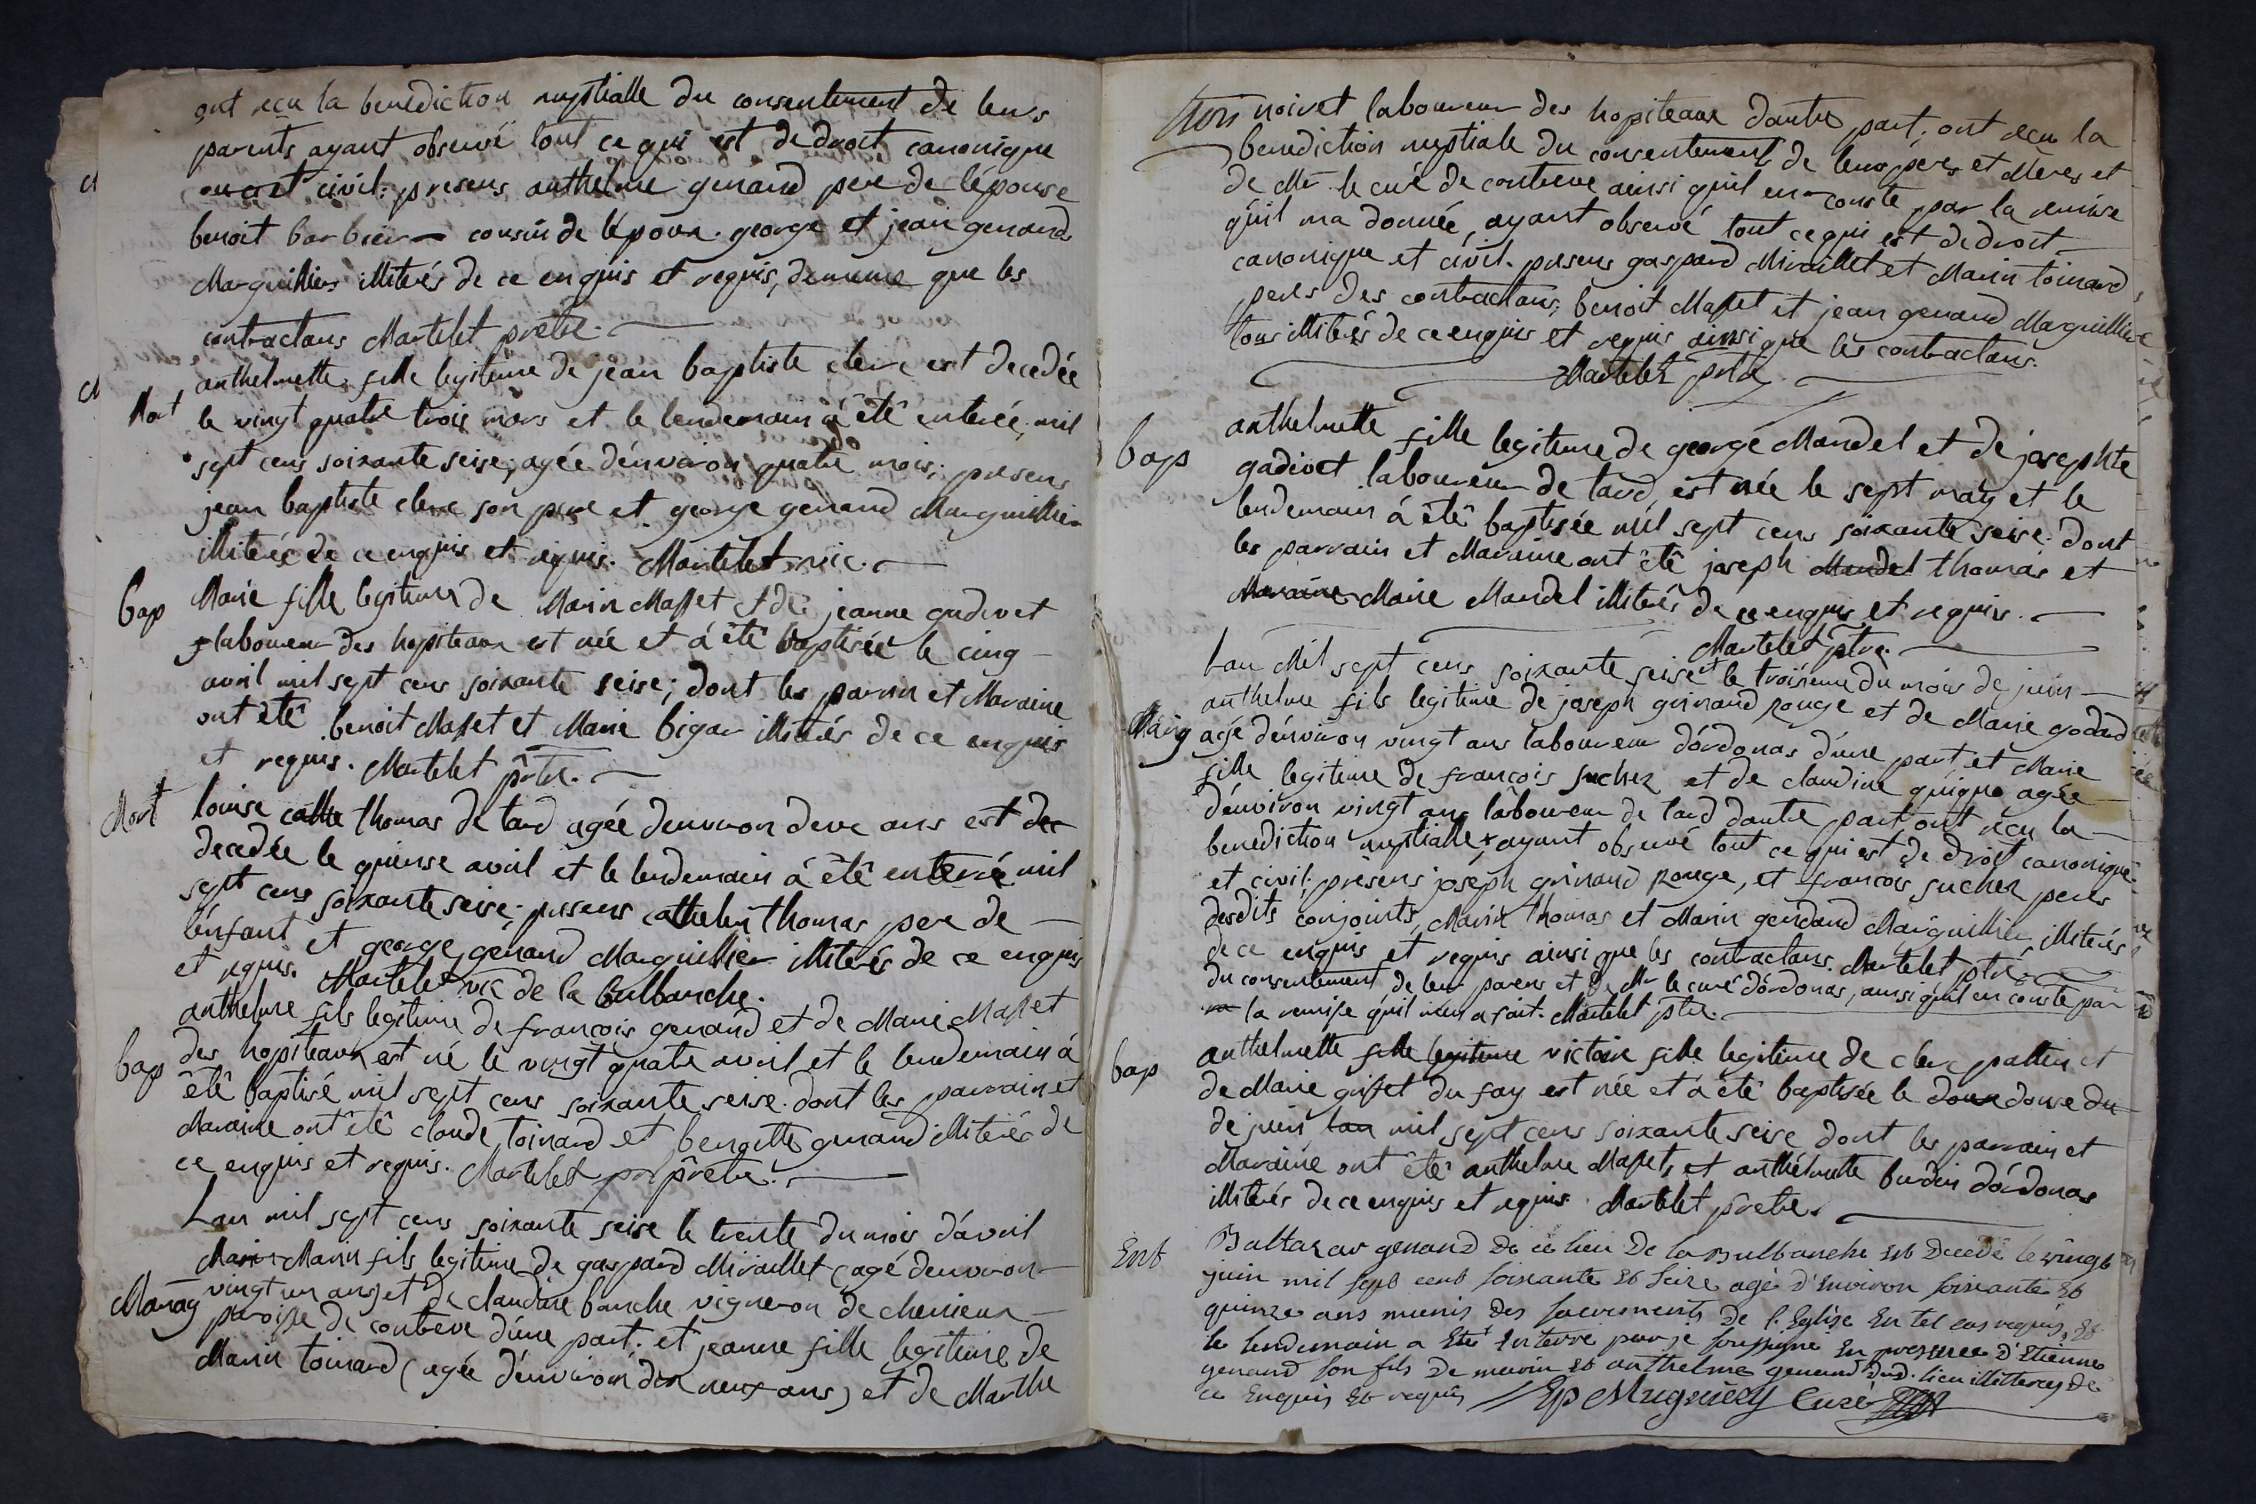 ont reçu la benediction nuptialle du consentement de leurs
parents ayant observé tout ce qui est de droit canonique
et civil. presens anthelme genand pere de l'épouse
benoit barbier cousin de l'époux. george et jean genand
Marguilliers illiterés de ce enquis et requis, de meme que les
contractans Martelet prêtre.
Mort
anthelmette fille legitime de jean baptiste clerc est decedée
le vingt quatre trois mars et le lendemain à êtê enterée, mil
sept cens soixante seise, agée d'énviron quatre mois; presens
jean baptiste clerc son pere et george genand Marguillier
illiterés de ce enquis et requis. Martelet vic.
bap
Marie fille legitime de Marin Masset et de jeanne gudivet
laboureur des hopiteaux est née et à êtê baptisée le cinq
avril mil sept cens soixante seise; dont les parrin et Maraine
ont êtê benoit Masset et Marie bigar illiterés de ce enquis
et requis. Martelet prtre.
Mort
louise cathe thomas de tard agée d'environ deux ans est dec
decedée le quinse avril et le lendemain à êtê enterré mil
sept cens soixante seise; presens cathelin thomas pere de
l'énfant et george genand Marguillier illiterés de ce enquis
et requis. Martelet vic de la bulbanche.
bap
anthelme fils legitime de françois genand et de Marie Masset
des hopiteaux est né le vingt quatre avril et le lendemain à
êtê baptisé mil sept cens soixante seise. dont les parrain et
Maraine ont êtê claude toinard et benoitte genand illiterés de
ce enquis et requis. Martelet prêtre.
Lan mil sept cens soixante seise le trente du mois d'avril
Mariag
Marin Marin fils legitime de gaspard Miraillet (agé denviron
vingt un ans) et de claudine banche vigneron de chemieux
paroisse de contreve d'úne part; et jeanne fille legitime de
Marin toinard (agée d'énviron dix neuf ans) et de Marthe
noivet laboureur des hopiteaux dautre part, ont reçu la
benediction nuptiale du consentement de leurs péres et Mères et
de Mr. le curé de contreve ainsi qu'il en conste par la remise
qu'il ma donnée, ayant observé tout ce qui est de droit
canonique et civil. presens gaspard Miraillet et Marin toinard
peres des contractans, benoit Masset et jean genand Marguilliers
tous illiterés de ce enquis et requis ainsi que les contractans.
Martelet prtre
bap
anthelmette fille legitime de george Mandel et de josephte
gadivet laboureur de tard, est née le sept may et le
lendemain à êtê baptisée mil sept cens soixante seise. dont
les parrain et Maraine ont êtê joseph Mandel thomas et
Maraine Marie Mandel illiterés de ce enquis et requis.
Martelet ptre.
Lan Mil sept cens soixante seise et le troisieme du mois de juin
Mariag
anthelme fils legitime de joseph grinand Rouge et de Marie godard
agé d'énviron vingt ans laboureur d'ordonas d'úne part et Marie
fille legitime de françois sucher et de claudine guigue agée
d'énviron vingt ans laboureur de tard dautre part ont reçu la
benediction nuptialle, ayant observé tout ce qui est de droit canonique
et civil; présens joseph grinand Rouge, et francois sucher peres
desdits conjoints, Marin thomas et Marin gendand Marguillier, illiterés
de ce enquis et requis ainsi que les contractans. Martelet ptre.
du consentement de leur parens et de Mr le curé d'órdonas, ainsi qu'il en conste par
la remise qu'il m'en a fait. Martelet ptre.
bap
anthelmette fille legitime victoire fille legitime de clerc pattin et
de Marie grisset du fay est née et à êtê baptisée le doux douse du
de juin lan mil sept cens soixante seise dont les parrain et
Maraine ont êtê anthelme Masset, et anthélmette burdin d'órdonas
illiterés de ce enquis et requis. Martelet pretre.
Ent
Baltazar genand de ce lieu de la Bulbanche Est Decedé le vingt
juin mil sept cent soixante Et seize agé d'Environ soixante Et
quinze ans munis des sacrements de l'Eglise En tel cas requis, Et
le lendemain a Eté Enterré par je soussigné En presence d'Etienne
genand son fils de marin Et anthelme genand dud. lieu illitterez de
ce Enquis Et requis Mugniery Curé